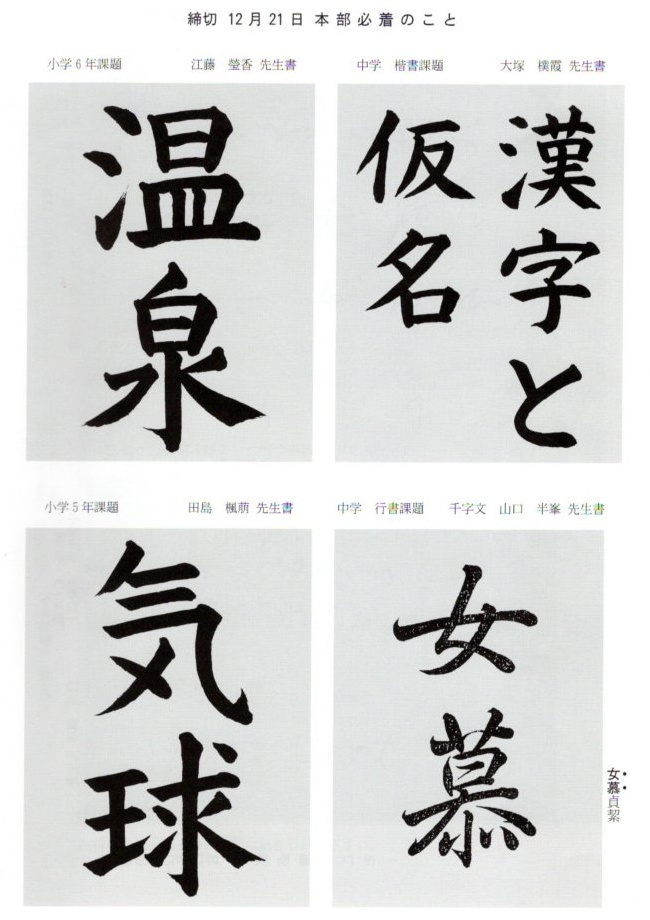 締切 12月21日 本部必着のこと
中学 楷書課題 大塚 樸霞 先生書
漢字と
仮名
小学6年課題 江藤 瑩香 先生書
温泉
中学 行書課題 千字文 山口 半峯 先生書
女慕
女慕貞絜
小学5年課題 田島 楓萠 先生書
気球